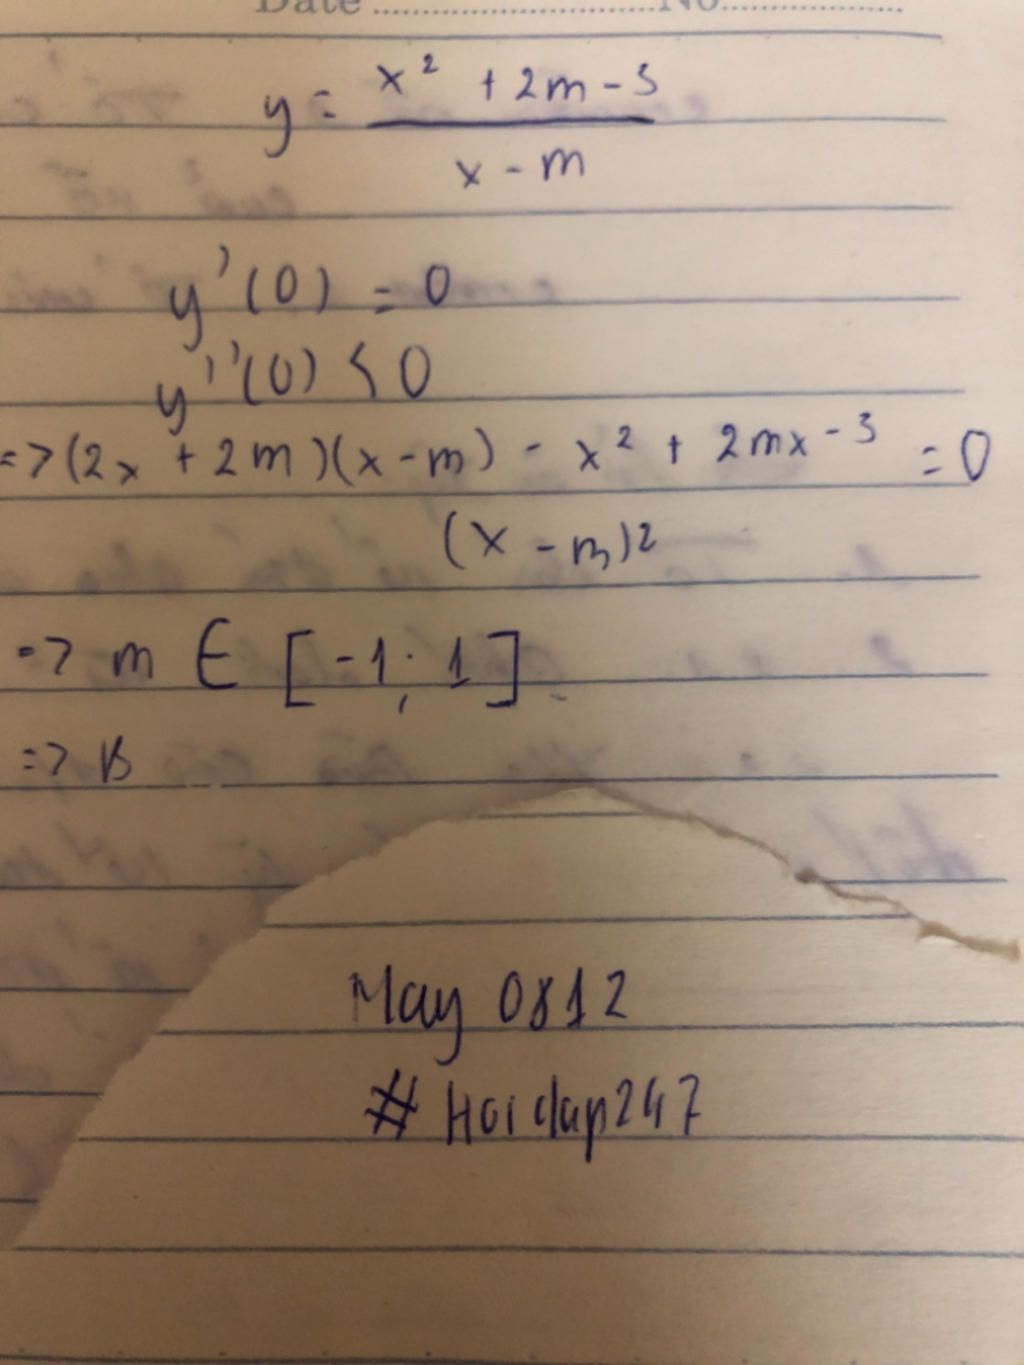 Date ........................No................
y = x² + 2m - 3
x - m
y'(0) = 0
y''(0) < 0
=> (2x + 2m)(x - m) - x² + 2mx - 3 = 0
(x - m)2
=> m ∈ [-1; 1]
=> B
May 0812
# Hoidap247